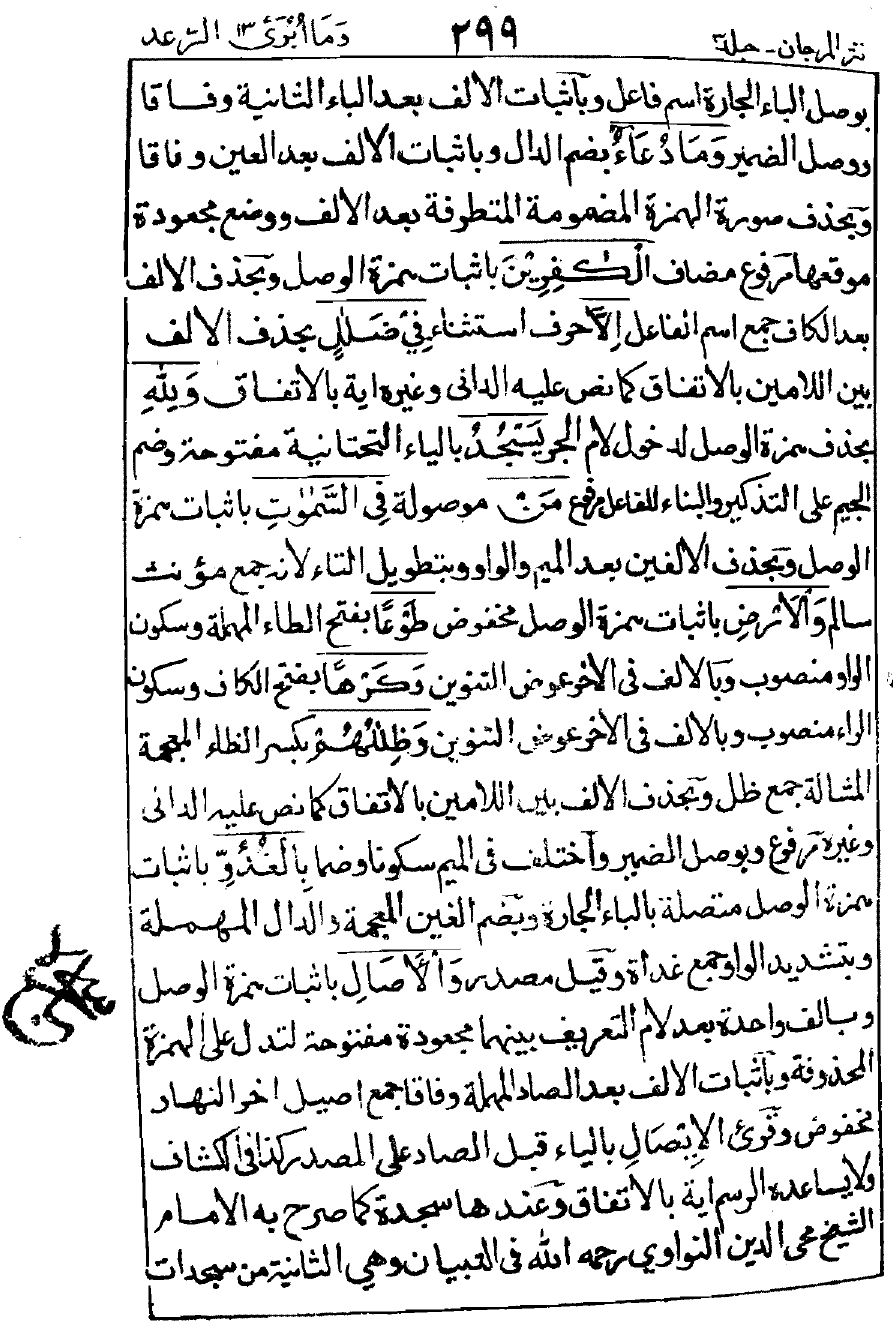 نثر المرجان - جلد ٣ ٢٩٩ وَمَا أُبَرِّئُ ١٣ الرعد
بوصل الباء الجارة اسم فاعل وباثبات الالف بعد الباء الثانية وفاقا
ووصل الضمير وَمَا دُعَآءُ بضم الدال وباثبات الالف بعد العين وفاقا
وبحذف صورة الهمزة المضمومة المتطرفة بعد الالف ووضع مجعودة
موقعها مرفوع مضاف الْكٰفِرِيْنَ باثبات همزة الوصل وبحذف الالف
بعد الكاف جمع اسم الفاعل اِلَّا حرف استثناء فِيْ ضَلٰلٍ بحذف الالف
بين اللامين بالاتفاق كما نص عليه الدانى وغيره اية بالاتفاق وَلِلّٰهِ
بحذف همزة الوصل لدخول لام الجر يَسْجُدُ بالياء التحتانية مفتوحة وضم
الجيم على التذكير والبناء للفاعل مرفوع مَنْ موصولة فِي السَّمٰوٰتِ باثبات همزة
الوصل وبحذف الالفين بعد الميم والواو وبتطويل التاء لانه جمع مؤنث
سالم وَالْاَرْضِ باثبات همزة الوصل مخفوض طَوْعًا بفتح الطاء المهملة وسكون
الواو منصوب وبالالف فى الاخر عوض التنوين وَكَرْهًا بفتح الكاف وسكون
الراء منصوب وبالالف فى الاخر عوض التنوين وَظِلٰلُهُمْ بكسر الظاء المعجمة
المشالة جمع ظل وبحذف الالف بين اللامين بالاتفاق كما نص عليه الدانى
وغيره مرفوع وبوصل الضمير واختلف فى الميم سكونا وضما بِالْغُدُوِّ باثبات
همزة الوصل متصلة بالباء الجارة وبضم الغين المعجمة والدال المهملة
وبتشديد الواو جمع غداة وقيل مصدر وَالْاٰصَالِ باثبات همزة الوصل
وبالف واحدة بعد لام التعريف بينهما مجعودة مفتوحة لتدل على الهمزة
المحذوفة وباثبات الالف بعد الصاد المهملة وفاقا جمع اصيل اخر النهار
مخفوض وقرئ الاِيْصَالِ بالياء قبل الصاد على المصدر كذا فى الكشاف
ولا يساعده الرسم اية بالاتفاق وعندها سجدة كما صرح به الامام
الشيخ محى الدين النواوي رحمه الله فى التبيان وهي الثانية من سجدات